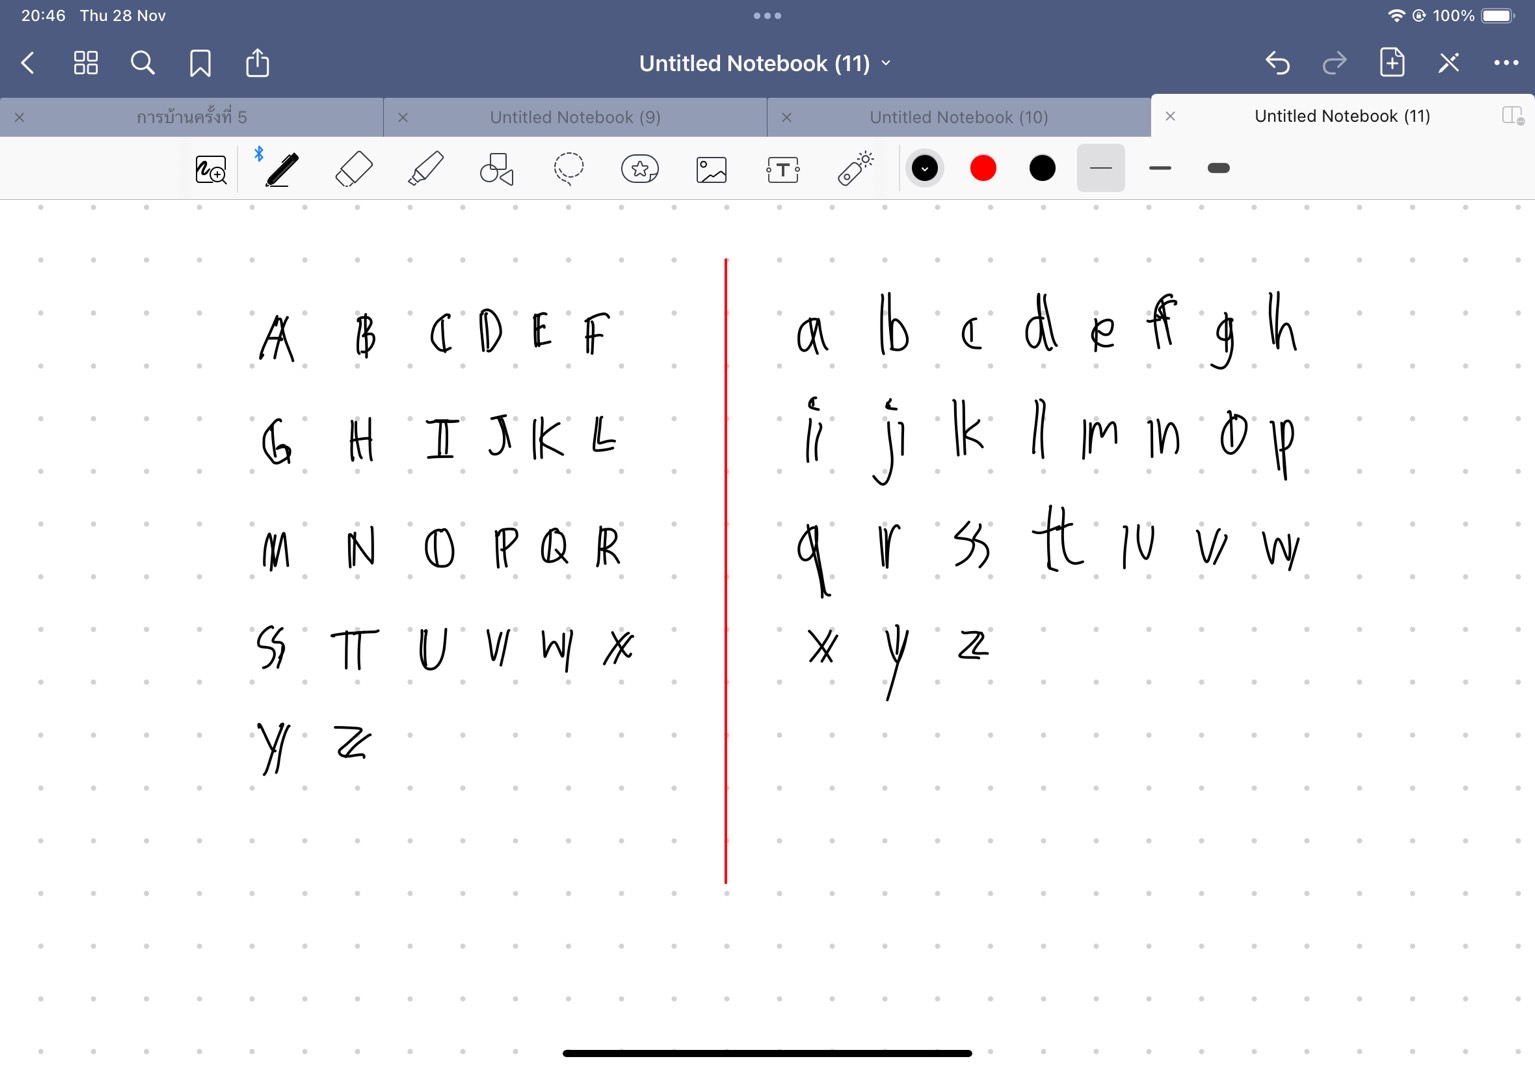 20:46 Thu 28 Nov 100%
Untitled Notebook (11)
การบ้านครั้งที่ 5 Untitled Notebook (9) Untitled Notebook (10) Untitled Notebook (11)
T
𝔸 𝔹 ℂ 𝔻 𝔼 𝔽
𝔾 ℍ 𝕀 𝕁 𝕂 𝕃
𝕄 ℕ 𝕆 ℙ ℚ ℝ
𝕊 𝕋 𝕌 𝕍 𝕎 𝕏
𝕐 ℤ
𝕒 𝕓 𝕔 𝕕 𝕖 𝕗 𝕘 𝕙
𝕚 𝕛 𝕜 𝕝 𝕞 𝕟 𝕠 𝕡
𝕢 𝕣 𝕤 𝕥 𝕦 𝕧 𝕨
𝕩 𝕪 𝕫